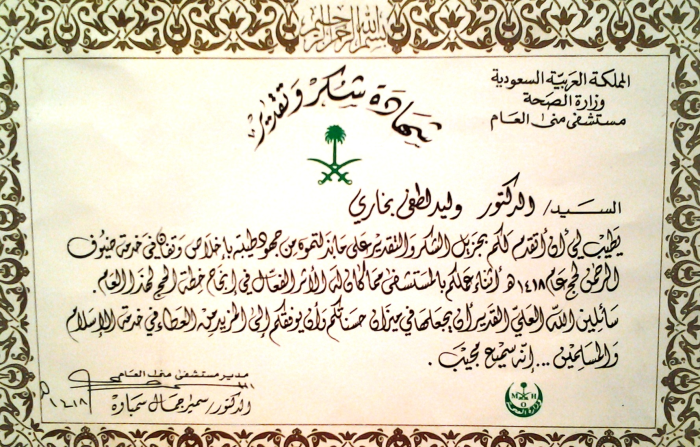 بسم الله الرحمن الرحيم
المملكة العربية السعودية
وزارة الصحة
مستشفى منى العام
شهادة شكر وتقدير
السيد/ الدكتور وليد لطفي بخاري
يطيب لي أن أتقدم لكم بجزيل الشكر والتقدير على ما بذلتموه من جهود طيبة بإخلاص وتفان في خدمة ضيوف
الرحمن لحج عام ١٤١٨ هـ أثناء عملكم بالمستشفى مما كان له الأثر الفعال في إنجاح خطة الحج لهذا العام.
سائلين الله العلي القدير أن يجعلها في ميزان حسناتكم وأن يوفقكم إلى المزيد من العطاء في خدمة الإسلام
والمسلمين ... إنه سميع مجيب .
مدير مستشفى منى العام
الدكتور/ سمير جمال سمباوه
١٤١٨هـ
M O H
وزارة الصحة